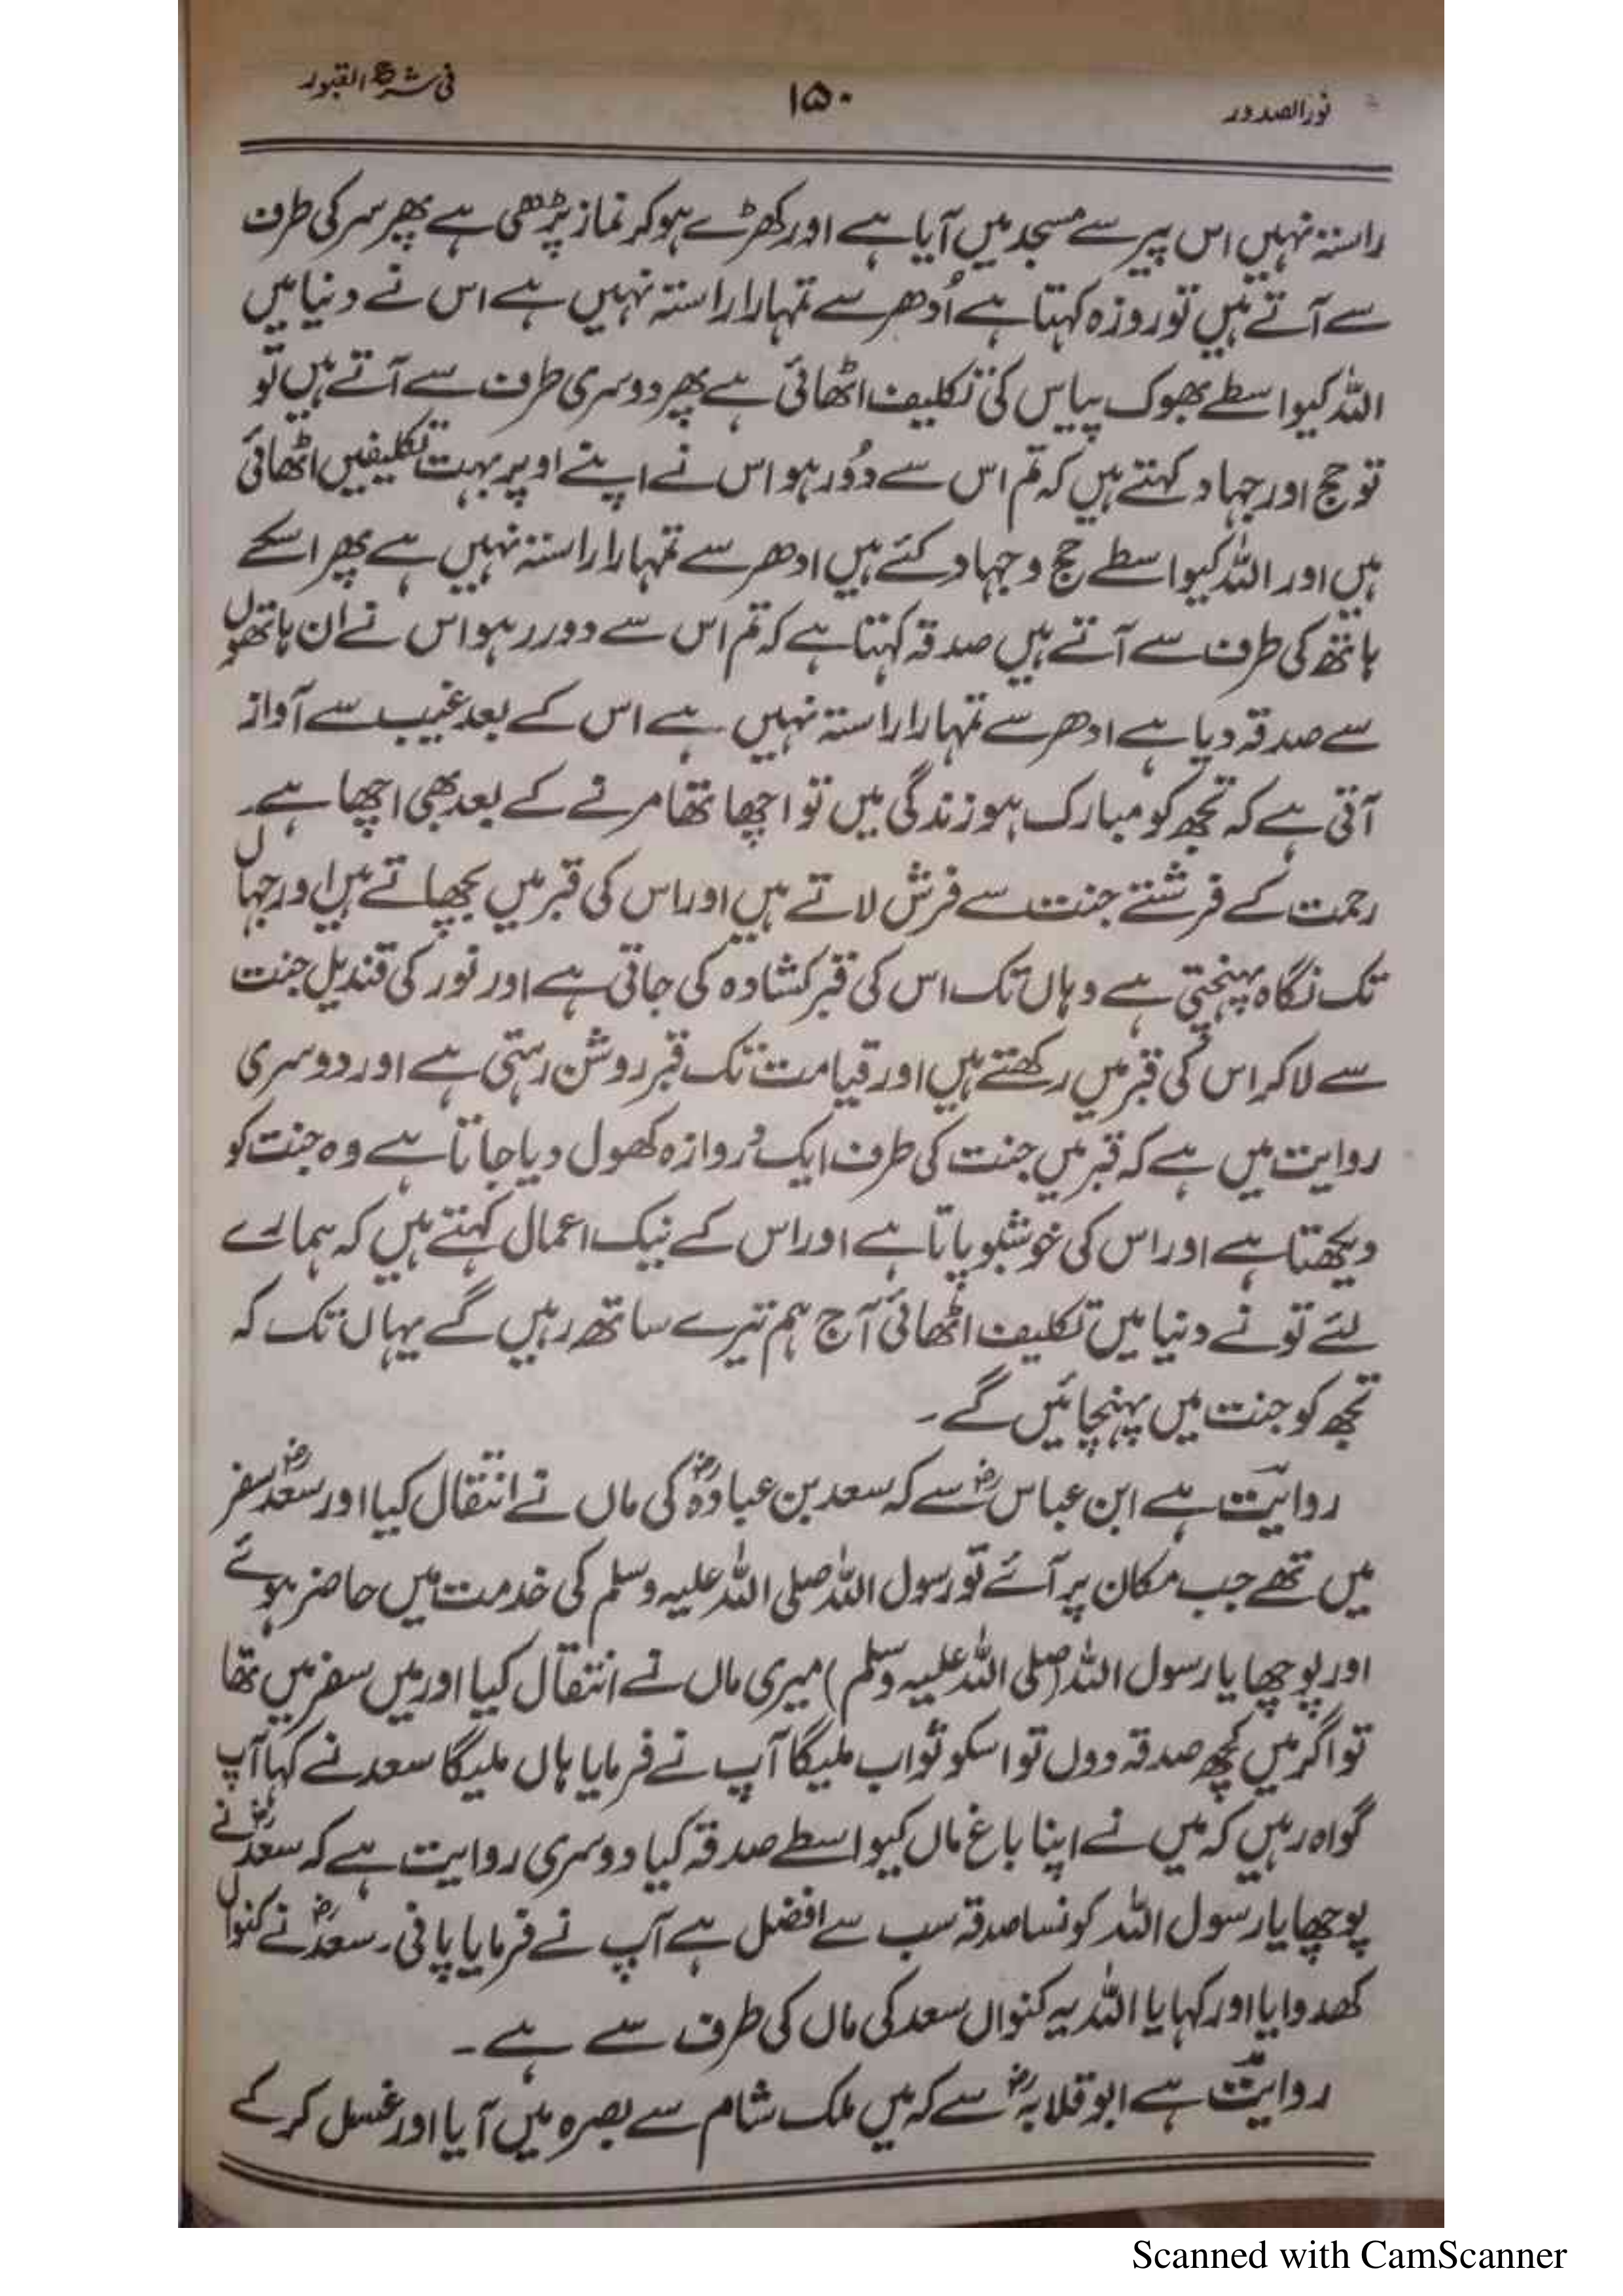 نور الصدور ۱۵۰ فی شرح القبور
راستہ نہیں اس پیر سے مسجد میں آیا ہے اور کھڑے ہو کر نماز پڑھی ہے پھر سر کی طرف
سے آتے ہیں تو روزہ کہتا ہے اُدھر سے تمہارا راستہ نہیں ہے اس نے دنیا میں
اللہ کیواسطے بھوک پیاس کی تکلیف اٹھائی ہے پھر دوسری طرف سے آتے ہیں تو
تو حج اور جہاد کہتے ہیں کہ تم اس سے دُور ہو اس نے اپنے اوپر بہت تکلیفیں اٹھائی
ہیں اور اللہ کیواسطے حج و جہاد کئے ہیں ادھر سے تمہارا راستہ نہیں ہے پھر اسکے
ہاتھ کی طرف سے آتے ہیں صدقہ کہتا ہے کہ تم اس سے دور رہو اس نے ان ہاتھوں
سے صدقہ دیا ہے ادھر سے تمہارا راستہ نہیں ہے اس کے بعد غیب سے آواز
آتی ہے کہ تجھ کو مبارک ہو زندگی میں تو اچھا تھا مرنے کے بعد بھی اچھا ہے۔
رحمت کے فرشتے جنت سے فرش لاتے ہیں اور اس کی قبر میں بچھاتے ہیں اور جہاں
تک نگاہ پہنچتی ہے وہاں تک اس کی قبر کشادہ کی جاتی ہے اور نور کی قندیل جنت
سے لا کر اس کی قبر میں رکھتے ہیں اور قیامت تک قبر روشن رہتی ہے اور دوسری
روایت میں ہے کہ قبر میں جنت کی طرف ایک دروازہ کھول دیا جاتا ہے وہ جنت کو
دیکھتا ہے اور اس کی خوشبو پاتا ہے اور اس کے نیک اعمال کہتے ہیں کہ ہمارے
لئے تو نے دنیا میں تکلیف اٹھائی آج ہم تیرے ساتھ رہیں گے یہاں تک کہ
تجھ کو جنت میں پہنچائیں گے۔
روایت ہے ابن عباسؓ سے کہ سعد بن عبادہؓ کی ماں نے انتقال کیا اور سعدؓ سفر
میں تھے جب مکان پر آئے تو رسول اللہ صلی اللہ علیہ وسلم کی خدمت میں حاضر ہوئے
اور پوچھا یا رسول اللہ (صلی اللہ علیہ وسلم) میری ماں نے انتقال کیا اور میں سفر میں تھا
تو اگر میں کچھ صدقہ دوں تو اسکو ثواب ملیگا آپ نے فرمایا ہاں ملیگا سعد نے کہا آپ
گواہ رہیں کہ میں نے اپنا باغ ماں کیواسطے صدقہ کیا دوسری روایت ہے کہ سعدؓ نے
پوچھا یا رسول اللہ کونسا صدقہ سب سے افضل ہے آپ نے فرمایا پانی۔ سعدؓ نے کنواں
کھدوایا اور کہا یا اللہ یہ کنواں سعد کی ماں کی طرف سے ہے۔
روایت ہے ابو قلابہؓ سے کہ میں ملک شام سے بصرہ میں آیا اور غسل کر کے
Scanned with CamScanner